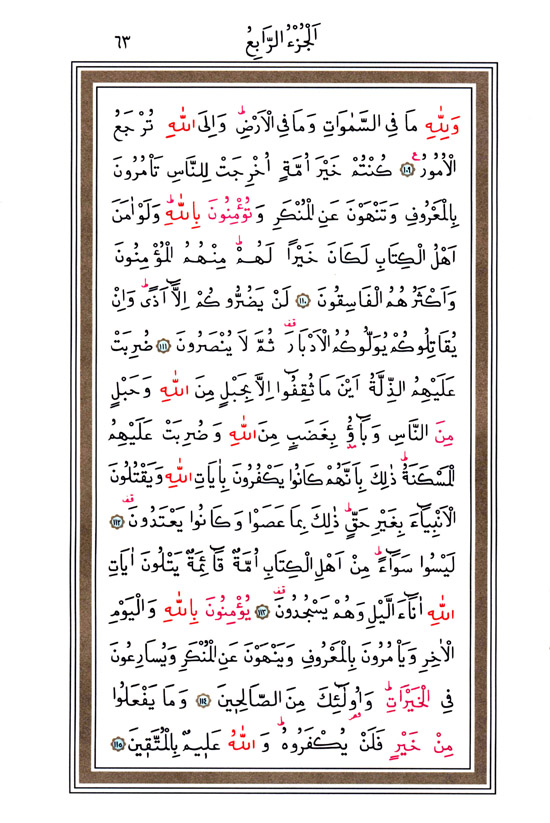 اَلْجُزْءُ الرَّابِعُ ٦٣
وَلِلّٰهِ مَا فِي السَّمٰوَاتِ وَمَا فِي الْاَرْضِۜ وَاِلَى اللّٰهِ تُرْجَعُ
الْاُمُورُ۟ ﴿١٠٩﴾ كُنْتُمْ خَيْرَ اُمَّةٍ اُخْرِجَتْ لِلنَّاسِ تَأْمُرُونَ
بِالْمَعْرُوفِ وَتَنْهَوْنَ عَنِ الْمُنْكَرِ وَتُؤْمِنُونَ بِاللّٰهِۜ وَلَوْ اٰمَنَ
اَهْلُ الْكِتَابِ لَكَانَ خَيْرًا لَهُمْۜ مِنْهُمُ الْمُؤْمِنُونَ
وَاَكْثَرُهُمُ الْفَاسِقُونَ ﴿١١٠﴾ لَنْ يَضُرُّوكُمْ اِلَّٓا اَذًىۜ وَاِنْ
يُقَاتِلُوكُمْ يُوَلُّوكُمُ الْاَدْبَارَ۠ ثُمَّ لَا يُنْصَرُونَ ﴿١١١﴾ ضُرِبَتْ
عَلَيْهِمُ الذِّلَّةُ اَيْنَ مَا ثُقِفُٓوا اِلَّا بِحَبْلٍ مِنَ اللّٰهِ وَحَبْلٍ
مِنَ النَّاسِ وَبَٓاؤُ۫ بِغَضَبٍ مِنَ اللّٰهِ وَضُرِبَتْ عَلَيْهِمُ
الْمَسْكَنَةُۜ ذٰلِكَ بِاَنَّهُمْ كَانُوا يَكْفُرُونَ بِاٰيَاتِ اللّٰهِ وَيَقْتُلُونَ
الْاَنْبِيَٓاءَ بِغَيْرِ حَقٍّۜ ذٰلِكَ بِمَا عَصَوْا وَكَانُوا يَعْتَدُونَ۠ ﴿١١٢﴾
لَيْسُوا سَوَٓاءًۜ مِنْ اَهْلِ الْكِتَابِ اُمَّةٌ قَٓائِمَةٌ يَتْلُونَ اٰيَاتِ
اللّٰهِ اٰنَٓاءَ الَّيْلِ وَهُمْ يَسْجُدُونَ۠ ﴿١١٣﴾ يُؤْمِنُونَ بِاللّٰهِ وَالْيَوْمِ
الْاٰخِرِ وَيَأْمُرُونَ بِالْمَعْرُوفِ وَيَنْهَوْنَ عَنِ الْمُنْكَرِ وَيُسَارِعُونَ
فِي الْخَيْرَاتِۜ وَاُو۬لٰٓئِكَ مِنَ الصَّالِحِينَ ﴿١١٤﴾ وَمَا يَفْعَلُوا
مِنْ خَيْرٍ فَلَنْ يُكْفَرُوهُۜ وَاللّٰهُ عَلِيمٌ بِالْمُتَّقِينَ ﴿١١٥﴾